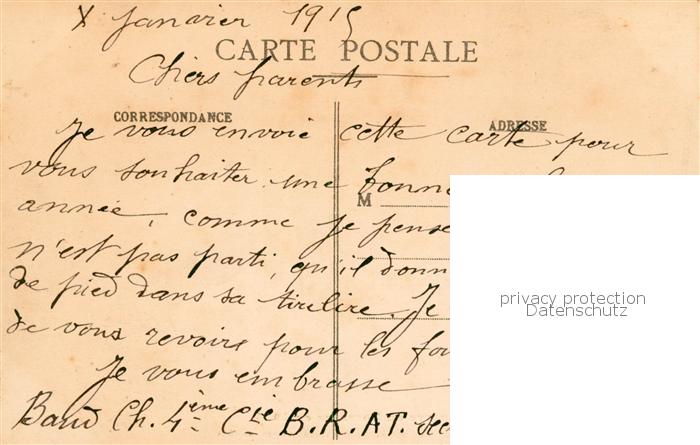 X Janvier 1915
CARTE POSTALE
Chers parents
CORRESPONDANCE
ADRESSE
Je vous envoie cette carte pour
vous souhaiter une bonne
M
année, comme je pense
n'est pas parti, qu'il donn
de pied dans sa tirelire. Je
de vous revoir pour les
Je vous embrasse
Baud Ch. 4ème Cie B.R.AT. sec
privacy protection
Datenschutz